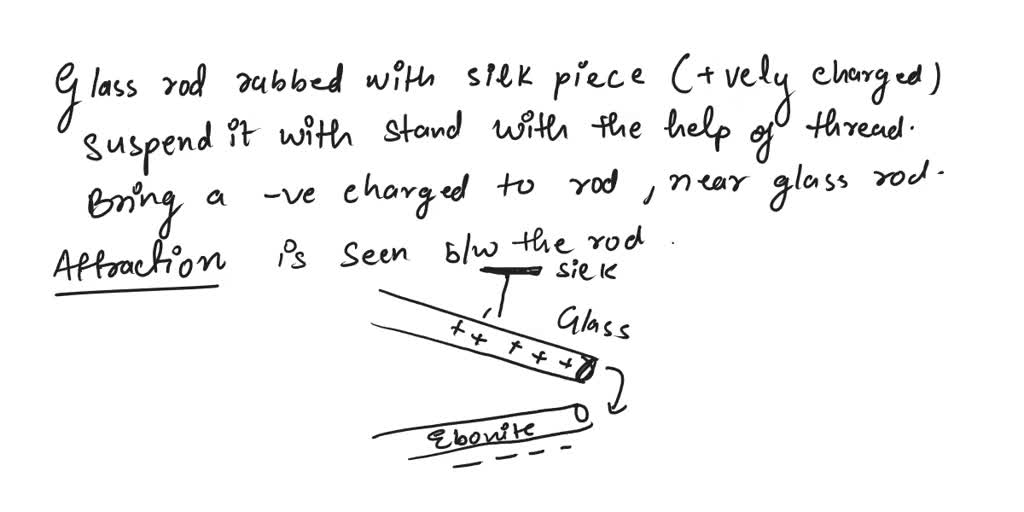 Glass rod rubbed with silk piece (+vely charged)
suspend it with stand with the help of thread.
Bring a -ve charged to rod, near glass rod.
Attraction is seen b/w the rod.
silk
Glass
+ + + + +
Ebonite
- - - -